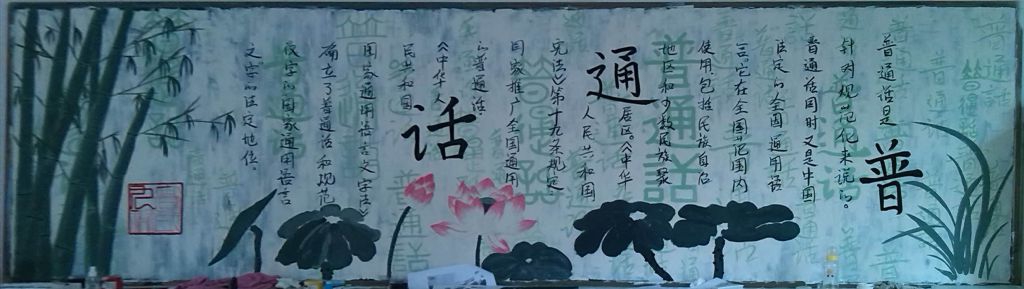 普
通
话
普通话是
针对规范化来说的。
普通话同时又是中国
法定的全国通用语
言。它在全国范围内
使用包括民族自治
地区和少数民族聚
居区。《中华
人民共和国
宪法》第十九条规定
国家推广全国通用
的普通话。
《中华人
民共和国
国家通用语言文字法》
确立了普通话和规范
汉字的国家通用语言
文字的法定地位。
普通話